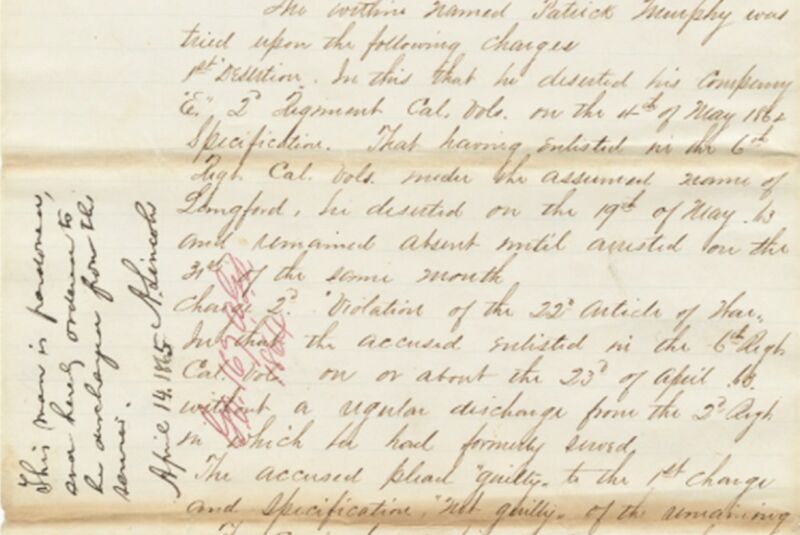 The within named Patrick Murphy was
tried upon the following charges
1st Desertion. In this that he deserted his Company
"E." 2d Regiment Cal. Vols. on the 4th of May 1862
Specification. That having enlisted in the 6th
Regt. Cal. Vols. under the assumed name of
Langford, he deserted on the 19th of May .63
and remained absent until arrested on the
31st of the same month
Charge 2d. "Violation of the 22d Article of War."
In that the accused enlisted in the 6th Regt.
Cal. Vols. on or about the 23d of April .63.
without a regular discharge from the 2d Regt
in which he had formerly served
The accused plead "guilty" to the 1st Charge
and specification, "Not guilty" of the remaining
This man is pardoned,
and hereby ordered to
be discharged from the
service.
A. Lincoln
April 14. 1865